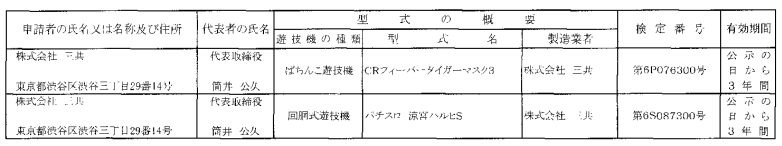 申請者の氏名又は名称及び住所 代表者の氏名 型式の概要 検定番号 有効期間
遊技機の種類 型式名 製造業者
株式会社 三共 代表取締役 ぱちんこ遊技機 CRフィーバータイガーマスク3 株式会社 三共 第6P076300号 公示の
日から
東京都渋谷区渋谷三丁目29番14号 筒井 公久 3年間
株式会社 三共 代表取締役 回胴式遊技機 パチスロ 涼宮ハルヒS 株式会社 三共 第6S087300号 公示の
日から
東京都渋谷区渋谷三丁目29番14号 筒井 公久 3年間